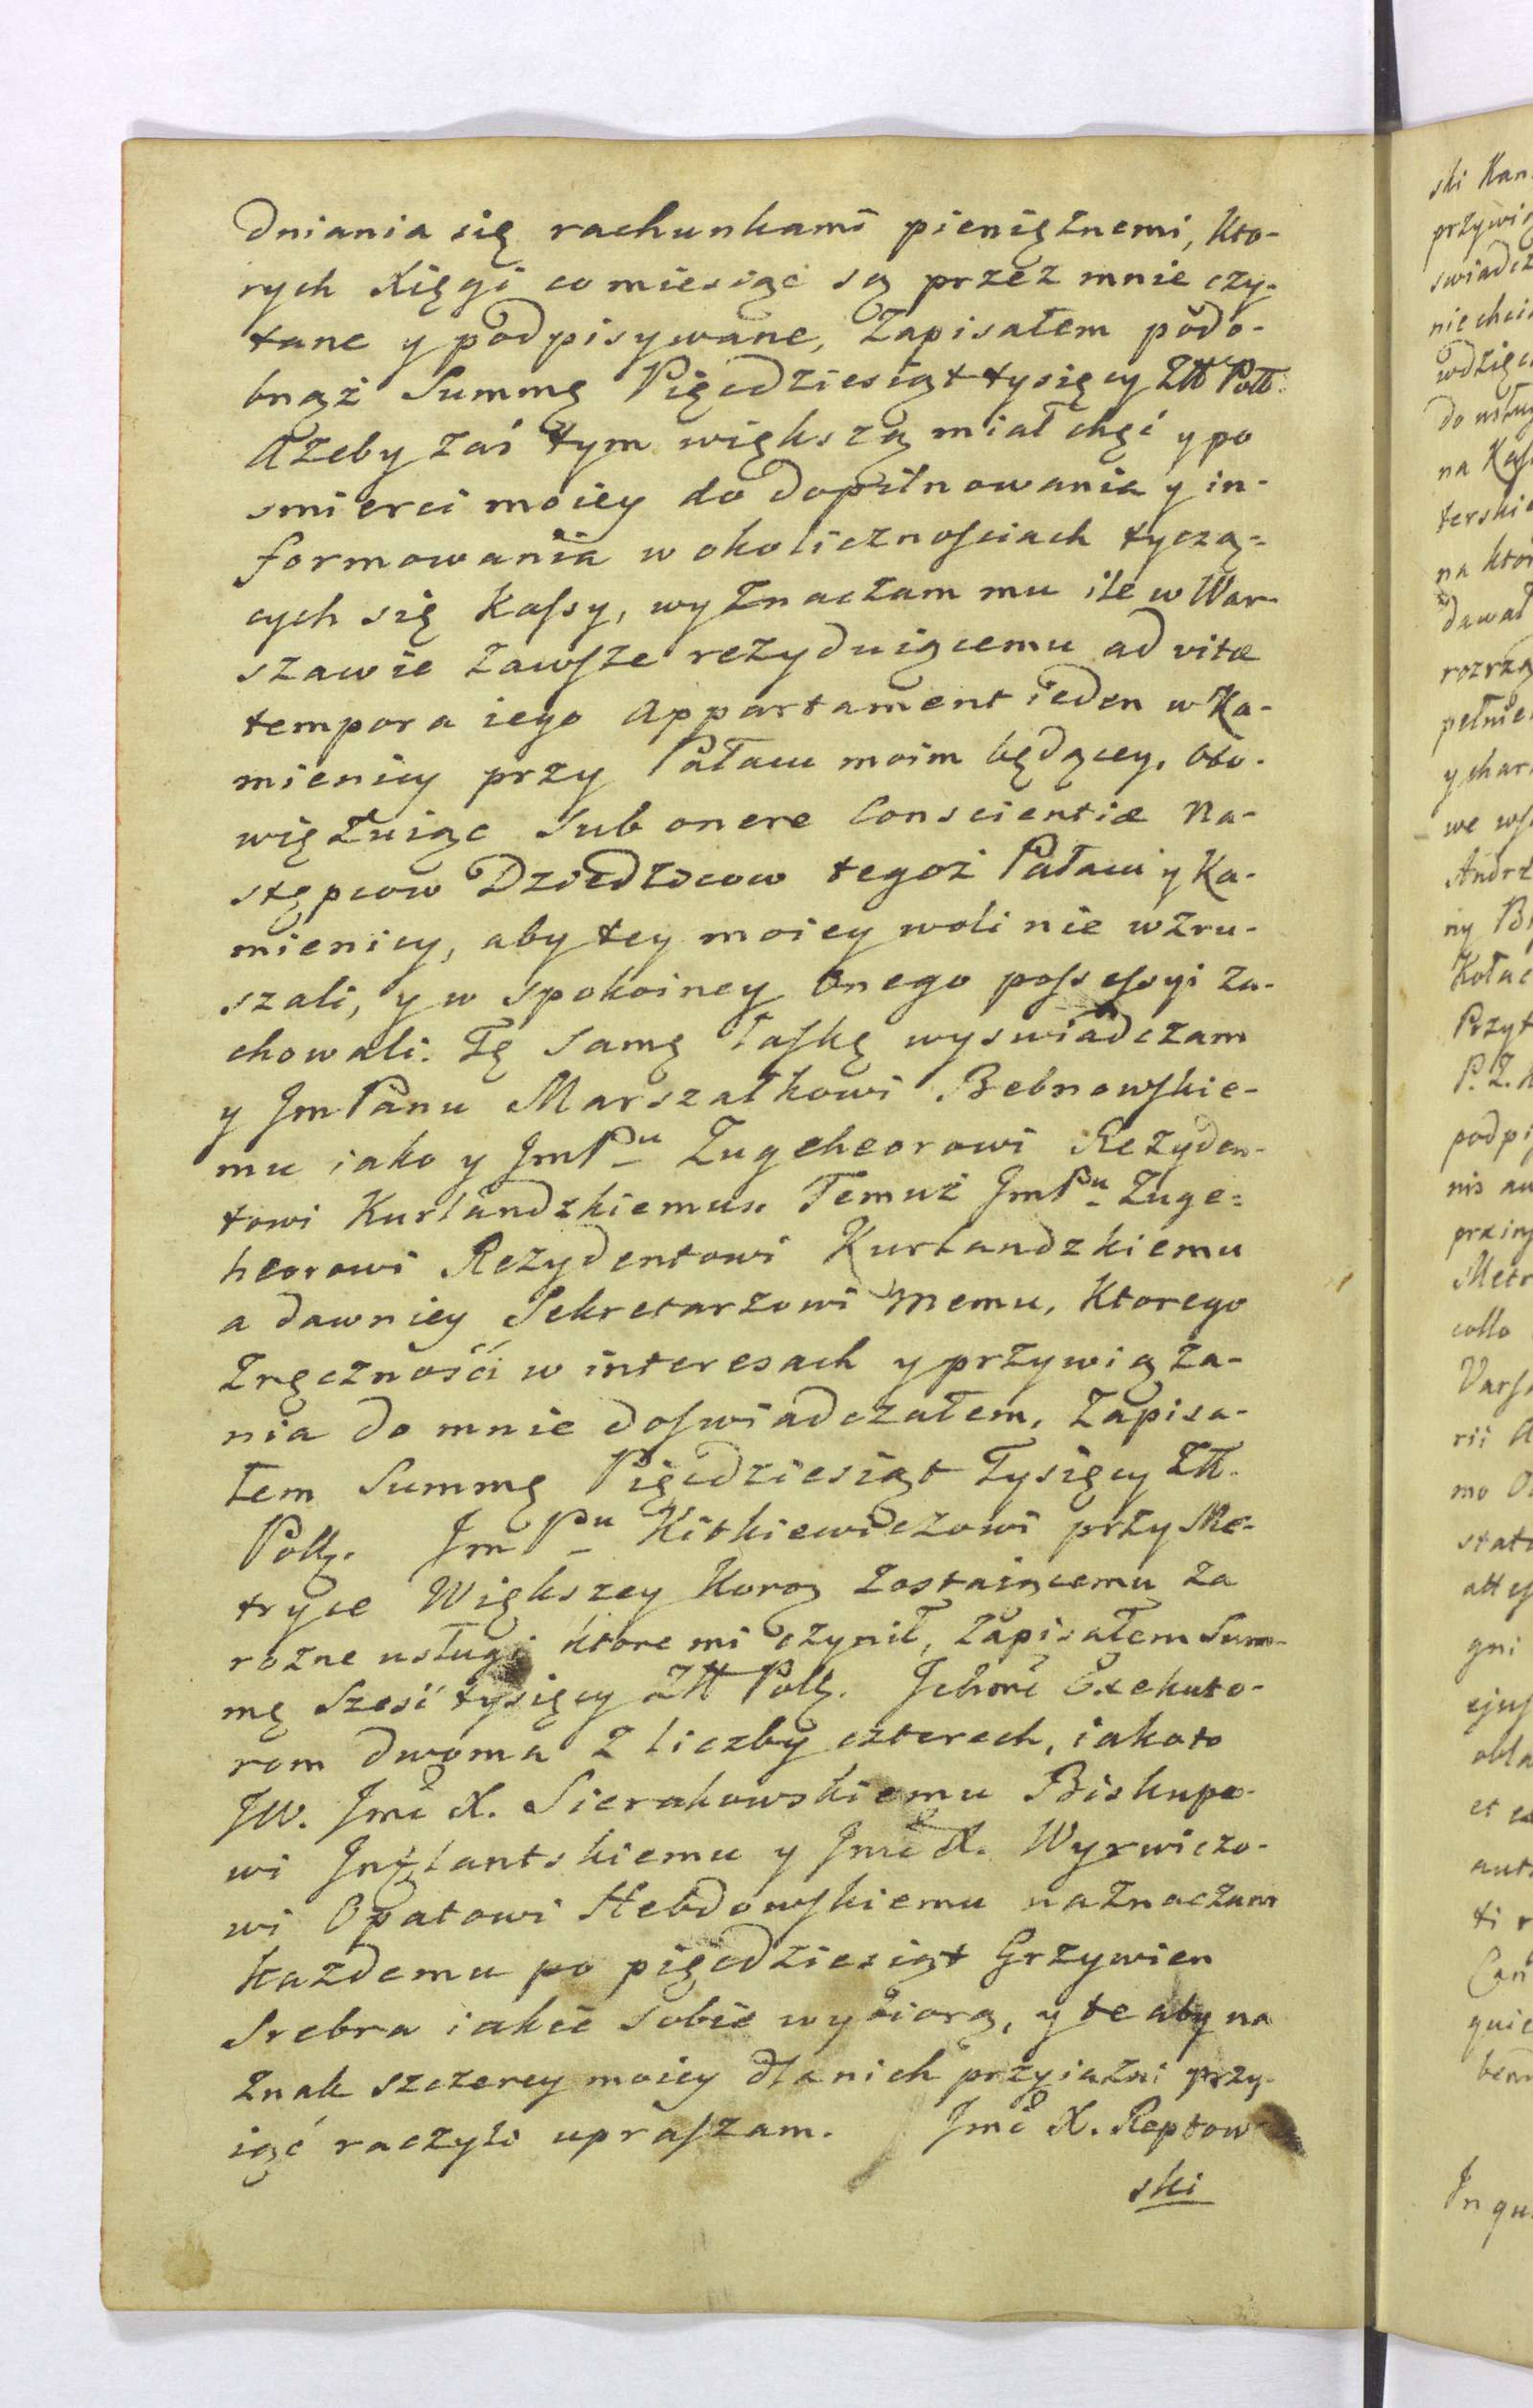 dniania się rachunkami pieniężnemi, Kto-
rych Xięgi co miesiąc są przez mnie czy-
tane y podpisywane, Zapisałem podo-
bnąż Summę Pięcdziesiąt tysięcy Złł Poll:
Ażeby zaś tym większą miał chęć y po
smierci moiey do dopilnowania y in-
formowania w okolicznosciach tyczą-
cych się Kassy, wyznaczam mu ile w War-
szawie zawsze rezyduiącemu ad vitæ
tempora iego Appartament ieden w Ka-
mienicy przy Pałacu moim będącey, obo-
więzuiąc Sub onere Conscientiæ Na-
stępcow Dziedzicow tegoż Pałacu y Ka-
mienicy, aby tey moiey woli nie wzru-
szali, y w spokoiney Onego possessyi za-
chowali. Tę samę łaskę wyswiadczam
y Jm Panu Marszałkowi Bebnowskie-
mu iako y JmPu Zugeheorowi Rezyden-
towi Kurlandzkiemu. Temuż JmPu Zuge-
heorowi Rezydentowi Kurlandzkiemu
a dawniey Sekretarzowi memu, Ktorego
Zręczności w interesach y przywiąza-
nia do mnie doswiadczałem, Zapisa-
łem Summę Pięcdziesiąt Tysięcy Złł.
Poll. Jm Pu Kitkiewiczowi przy Me-
tryce Większey Koroą zostaiącemu za
rozne usługi ktore mi czynił, Zapisałem Sum-
mę Szesć tysięcy Złł Poll. Ichmć Exekuto-
rom dwoma z liczby czterech, iakoto
JW. Jmć X. Sierakowskiemu Biskupo-
wi Inflantskiemu y Jmć X. Wyrwiczo-
wi Opatowi Hebdowskiemu naznaczam
Każdemu po pięcdziesiąt Grzywien
Srebra iakie sobie wybiorą, y te aby na
Znak szczerey moiey dla nich przyiazni przy-
iąć raczyli upraszam. Jmć X. Reptow
ski
ski Kan
swiadcz
do usług
na Kass
terski
na kto
dawał
rozrzą
ychar
Andrz
Przyt
podpi
nis au
Metr
collo
Vars
mo O
attes
gni
et
In qu